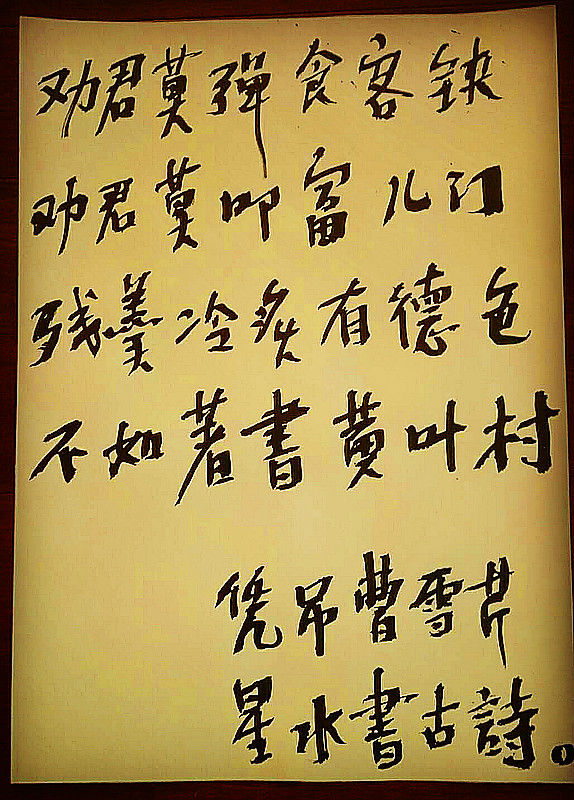 劝君莫彈食客铗
劝君莫叩富儿门
残羹冷炙有德色
不如著書黄叶村
凭吊曹雪芹
星水書古詩